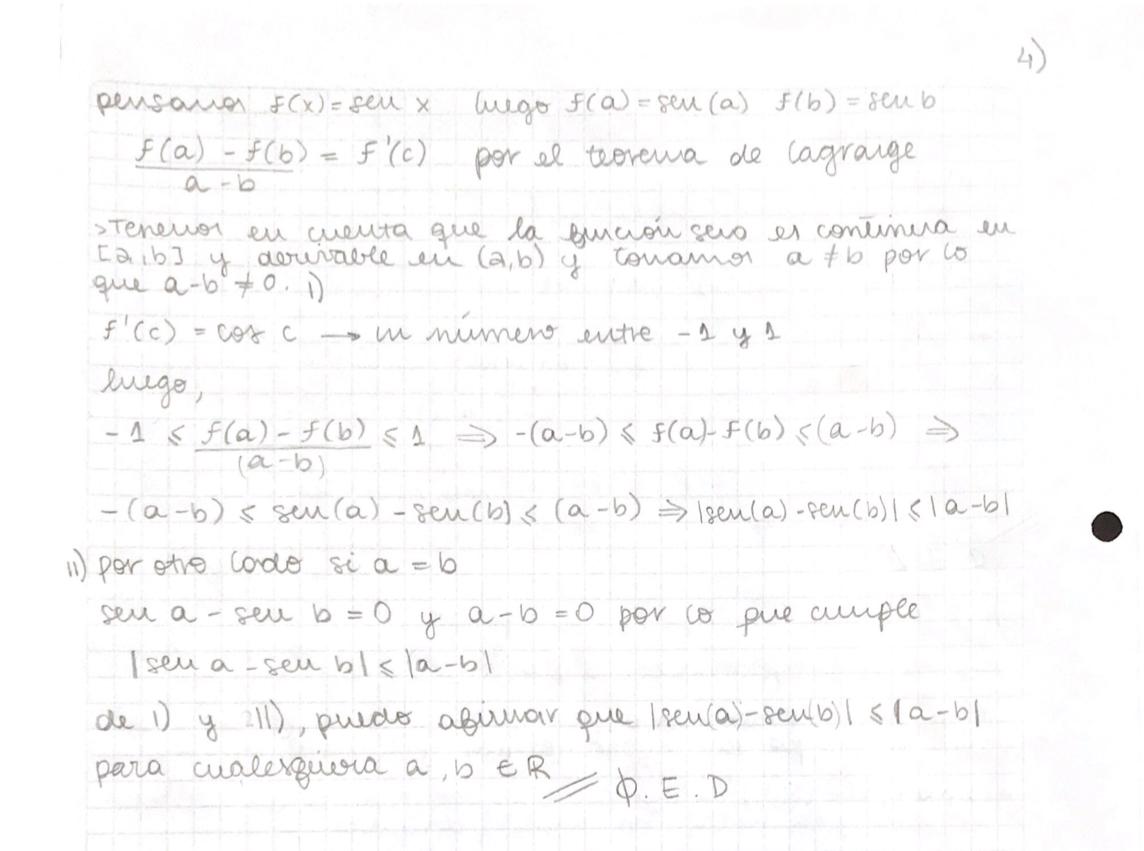 4)
pensamos f(x) = sen x luego f(a) = sen(a) f(b) = sen b
f(a) - f(b) / a - b = f'(c) por el teorema de Lagrange
>Tenemos en cuenta que la función seno es continua en
[a,b] y derivable en (a,b) y tomamos a ≠ b por lo
que a-b ≠ 0. I)
f'(c) = cos c → un número entre -1 y 1
luego,
-1 ≤ f(a) - f(b) / (a-b) ≤ 1 ⇒ -(a-b) ≤ f(a)-f(b) ≤ (a-b) ⇒
-(a-b) ≤ sen(a) - sen(b) ≤ (a-b) ⇒ |sen(a) - sen(b)| ≤ |a-b|
II) por otro lado si a = b
sen a - sen b = 0 y a-b = 0 por lo que cumple
|sen a - sen b| ≤ |a-b|
de I) y II), puedo afirmar que |sen(a)-sen(b)| ≤ |a-b|
para cualesquiera a, b ∈ R // Q.E.D